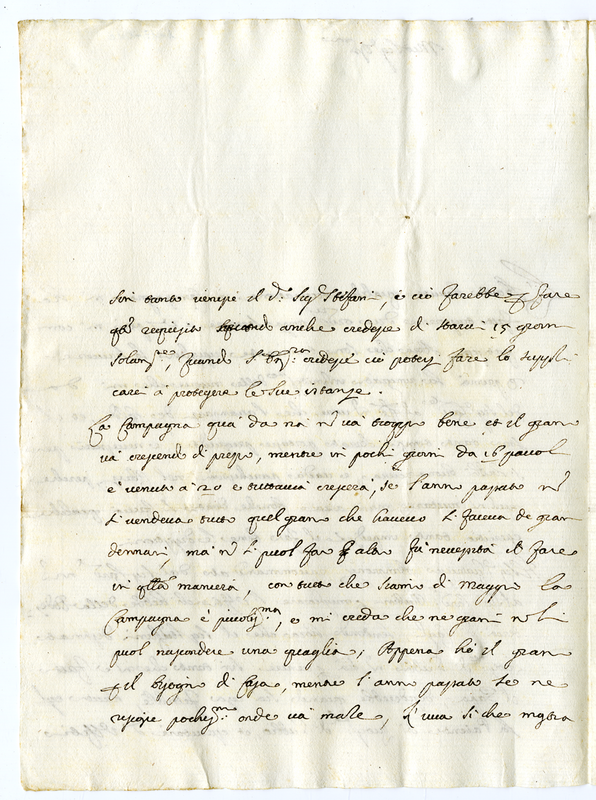 sin tanto venisse il d.º Sig.r Stefani, e ciò farebbe p fare
q.to requisito anche credesse di starci 15 giorni
solam.te, quando S. credesse ciò potersi fare lo suppli
carei a protegere le sue istanze.
La Campagna quà da noi n và troppo bene et il gran
và crescend di prezzo, mentre in pochi giorni da 16 pauoli
è venuto à 20 e tuttavia crescerà, se l'anno passato n
si vendeva tutto quel gran che havevo si faceva de gran
dennari, mà n si puol far altro fù necessità il fare
in q.lla maniera, con tutto che siam di Maggio la
Campagna è picoliss.ma, e mi creda che ne grani n si
puol nascondere una quaglia, Appena hò il gran
p il bisogno di Casa, mentre l'anno passato se ne
rescose pochiss.mo onde và male, L'uva si che mostra